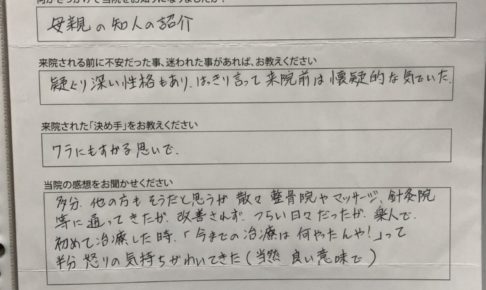 何がきっかけで当院をお知りになりましたか？
母親の知人の紹介
来院される前に不安だった事、迷われた事があれば、お教えください
疑ぐり深い性格もあり、はっきり言って来院前は懐疑的な気でいた。
来院された「決め手」をお教えください
ワラにもすがる思いで。
当院の感想をお聞かせください
多分、他の方もそうだと思うが散々整骨院やマッサージ、針灸院
等に通ってきたが、改善されず、つらい日々だったが、楽人で
初めて治療した時、「今までの治療は何やったんや！」って
半分怒りの気持ちがわいてきた（当然良い意味で）